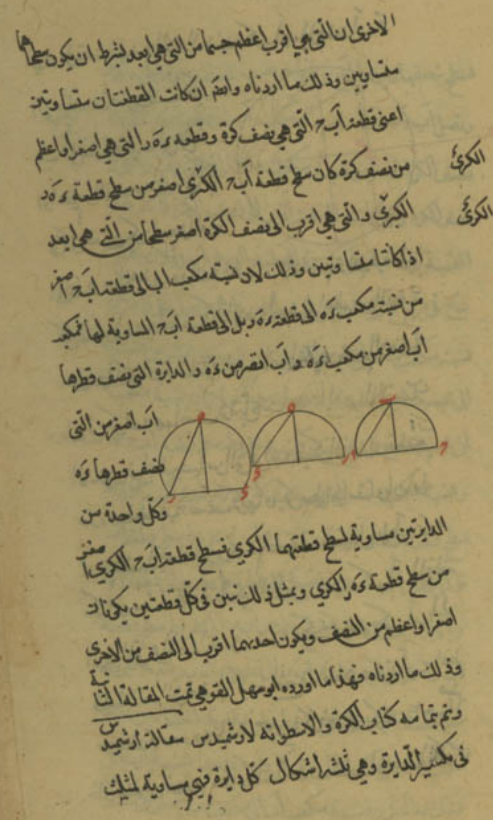 الاخرى ان التى هى اقرب اعظم جسما من التى هى ابعد بشرط ان يكون سطحاهما
متساويين وذلك ما اردناه وايضا ان كانت القطعتان متساويتين
اعنى قطعة اب‍ح التى هى نصف كرة وقطعة ءه‍ر التى هى اصغر او اعظم
من نصف كرة كان سطح قطعة اب‍ح الكرى اصغر من سطح قطعة ءه‍ر
الكرى
الكرى والتى هى اقرب الى نصف الكرة اصغر سطحا من التى هى ابعد
الكرى
اذا كانتا متساويتين وذلك لان نسبة مكعب اب الى قطعة اب‍ح اصغر
من نسبة مكعب ءه الى قطعة ءه‍ر بل الى قطعة اب‍ح المساوية لها فمكعب
اب اصغر من مكعب ءه و اب اقصر من ءه والدايرة التى نصف قطرها
اب اصغر من التى
نصف قطرها ءه
وكل واحدة من
الدايرتين مساوية لسطح قطعتهما الكرى فسطح قطعة اب‍ح الكرى اصغر
من سطح قطعة ءه‍ر الكرى وبمثل ذلك نبين فى كل قطعتين يكونان
اصغر او اعظم من النصف ويكون احديهما اقرب الى النصف من الاخرى
وذلك ما اردناه فهذا ما اورده ابوسهل القوهى تمت المقالة الثانية
وتم بتمامه كتاب الكرة والاسطوانه لارشميدس مقالة ارشميدس
فى تكسير الدايرة وهى ثلثة اشكال كل دايرة فهى مساوية لمثلث